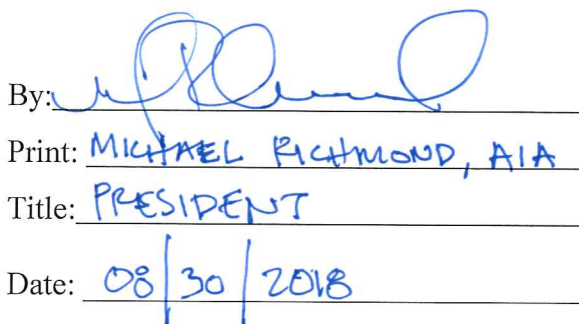 By:
Print: MICHAEL RICHMOND, AIA
Title: PRESIDENT
Date: 08/30/2018